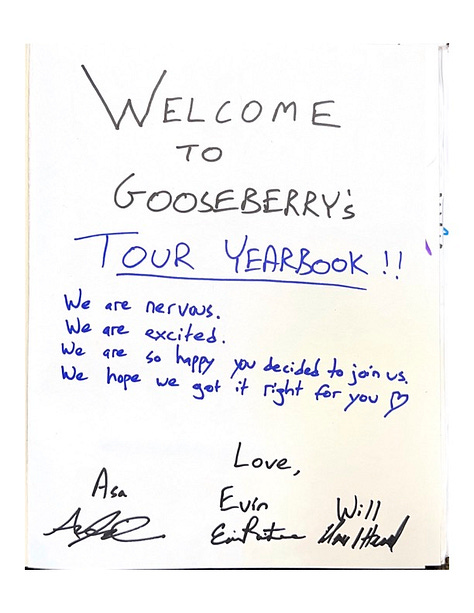 WELCOME
TO
GOOSEBERRY's
TOUR YEARBOOK !!
We are nervous.
We are excited.
We are so happy you decided to join us.
We hope we got it right for you ♡
Love,
Asa Evin Will